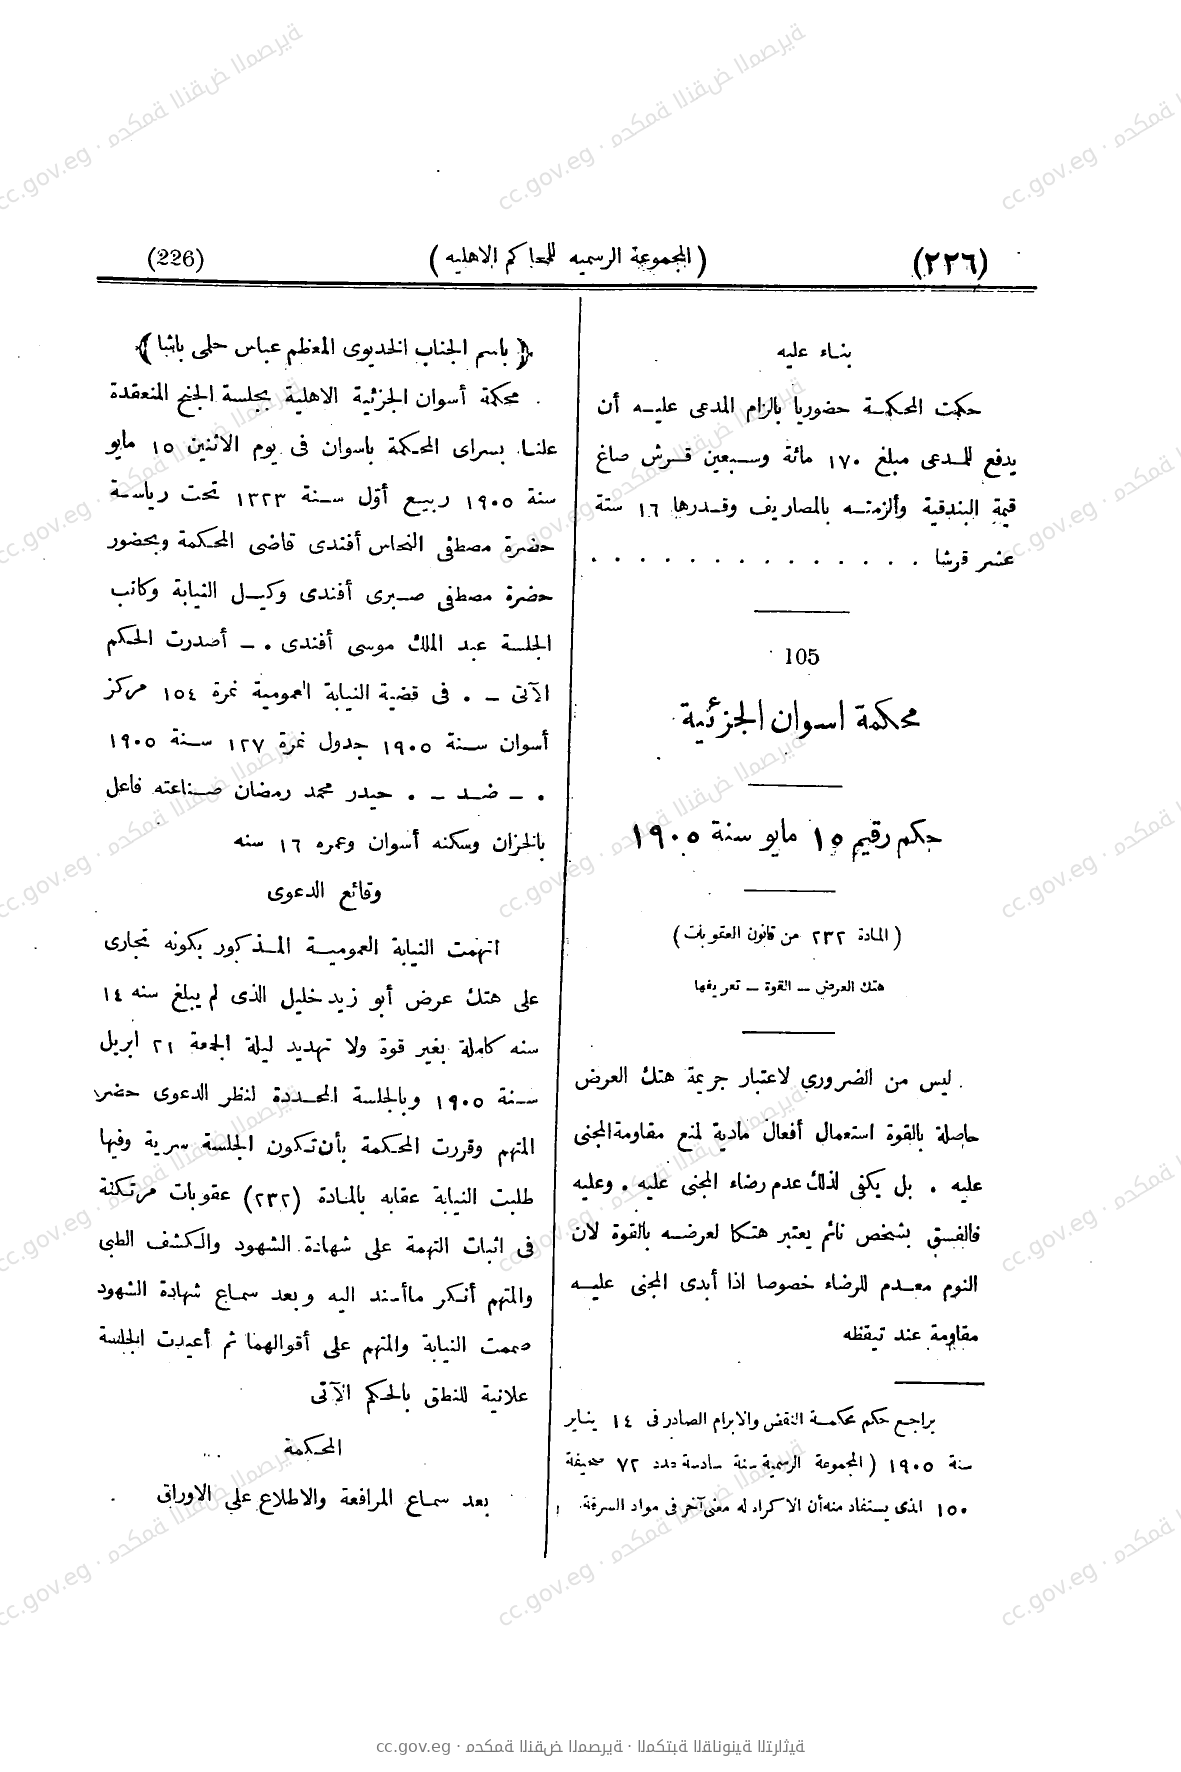 (٢٢٦)
(المجموعة الرسميه للمحاكم الاهليه)
(226)
بناء عليه
حكمت المحكمة حضوريا بالزام المدعى عليه أن
يدفع للمدعى مبلغ ١٧٠ مائة وسبعين قرش صاغ
قيمة البندقية وألزمته بالمصاريف وقدرها ١٦ ستة
عشر قرشا . . . . . . . . . . . . . .
105
محكمة اسوان الجزئية
حكم رقيم ١٥ مايو سنة ١٩٠٥
(المادة ٢٣٢ من قانون العقوبات)
هتك العرض – القوة – تعريفها
ليس من الضروري لاعتبار جريمة هتك العرض
حاصلة بالقوة استعمال أفعال مادية لمنع مقاومة المجنى
عليه . بل يكفى لذلك عدم رضاء المجنى عليه . وعليه
فالفسق بشخص نائم يعتبر هتكا لعرضه بالقوة لان
النوم معدم للرضاء خصوصا اذا أبدى المجنى عليه
مقاومة عند تيقظه
يراجع حكم محكمة النقض والابرام الصادر فى ١٤ يناير
سنة ١٩٠٥ (المجموعة الرسمية سنة سادسة عدد ٧٢ صحيفة
١٥٠ الذى يستفاد منه أن الاكراه له معنى آخر فى مواد السرقة.
﴿باسم الجناب الخديوى المعظم عباس حلمى باشا﴾
محكمة أسوان الجزئية الاهلية بجلسة الجنح المنعقدة
علنا بسراى المحكمة باسوان فى يوم الاثنين ١٥ مايو
سنة ١٩٠٥ ربيع أول سنة ١٣٢٣ تحت رياسة
حضرة مصطفى النحاس أفندى قاضى المحكمة وبحضور
حضرة مصطفى صبرى أفندى وكيل النيابة وكاتب
الجلسة عبد الملك موسى أفندى . – أصدرت الحكم
الآتى – . فى قضية النيابة العمومية نمرة ١٥٤ مركز
أسوان سنة ١٩٠٥ جدول نمرة ١٢٧ سنة ١٩٠٥
. – ضد – . حيدر محمد رمضان صناعته فاعل
بالخزان وسكنه أسوان وعمره ١٦ سنه
وقائع الدعوى
اتهمت النيابة العمومية المذكور بكونه تجارى
على هتك عرض أبو زيد خليل الذى لم يبلغ سنه ١٤
سنه كاملة بغير قوة ولا تهديد ليلة الجمعة ٢١ ابريل
سنة ١٩٠٥ وبالجلسة المحددة لنظر الدعوى حضر
المتهم وقررت المحكمة بأن تكون الجلسة سرية وفيها
طلبت النيابة عقابه بالمادة (٢٣٢) عقوبات مرتكنة
فى اثبات التهمة على شهادة الشهود والكشف الطبى
والمتهم أنكر ما أسند اليه وبعد سماع شهادة الشهود
صممت النيابة والمتهم على أقوالهما ثم أعيدت الجلسة
علانية للنطق بالحكم الآتى
المحكمة
بعد سماع المرافعة والاطلاع على الاوراق
cc.gov.eg · محكمة النقض المصرية · المكتبة القانونية التراثية